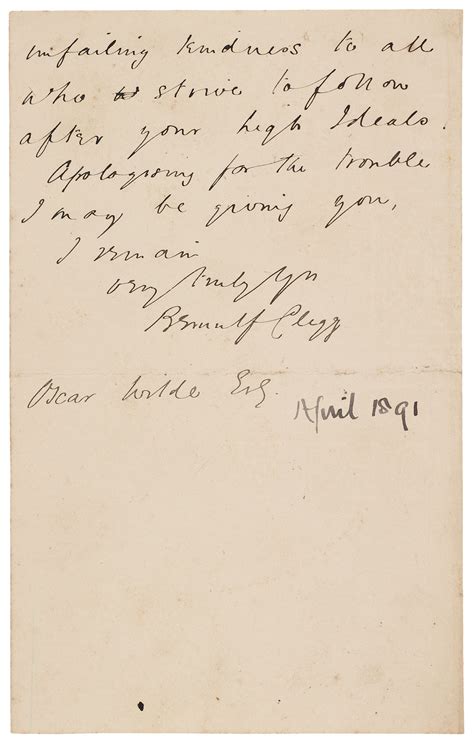 unfailing kindness to all
who strive to follow
after your high Ideals.
Apologising for the trouble
I may be giving you,
I remain
very truly yrs
Bernulf Clegg
Oscar Wilde Esq.
April 1891